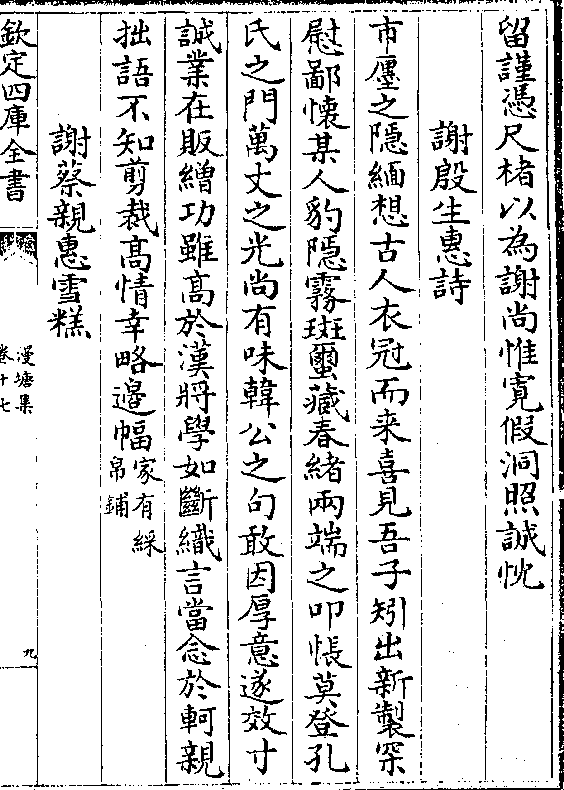 留謹憑尺楮以為謝尚惟寛假洞照誠忱
謝殷生惠詩
市廛之隱緬想古人衣冠而来喜見吾子矧出新製罙
慰鄙懐某人豹隱霧斑蠒藏春緒兩端之叩悵莫登孔
氏之門萬丈之光尚有味韓公之句敢因厚意遂效寸
誠業在販繒功雖髙於漢將學如斷織言當念於軻親
拙語不知剪裁髙情幸略邉幅家有綵
帛鋪
謝蔡親惠雪糕
欽定四庫全書
漫塘集
卷十七
九